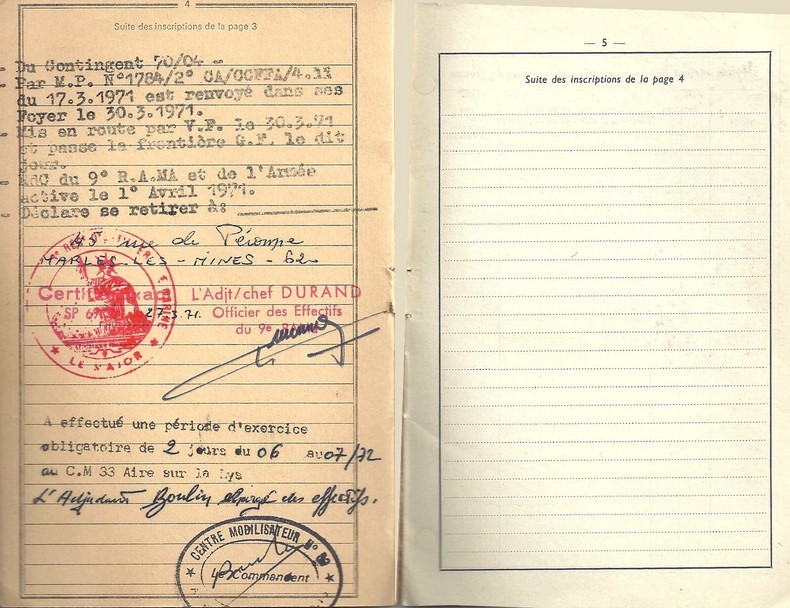 4
Suite des inscriptions de la page 3
Du Contingent 70/04 -
Par M.P. N°1784/2° CA/CCFFA/4.11
du 17.3.1971 est renvoyé dans ses
Foyer le 30.3.1971.
Mis en route par V.F. le 30.3.71
et passe la frontière G.F. le dit
jour.
RdC du 9° R.A.MA et de l'Armée
active le 1° Avril 1971.
Déclare se retirer à:
45 rue de Péronne
MARLES-LES-MINES - 62
Certifié exact
SP 69
27.3.71.
LE MAJOR
L'Adjt/chef DURAND
Officier des Effectifs
du 9e
A effectué une période d'exercice
obligatoire de 2 jours du 06 au 07/72
au C.M 33 Aire sur la Lys
L'Adjudant Boulin chargé des effectifs.
CENTRE MOBILISATEUR N°
Le Commandant
— 5 —
Suite des inscriptions de la page 4